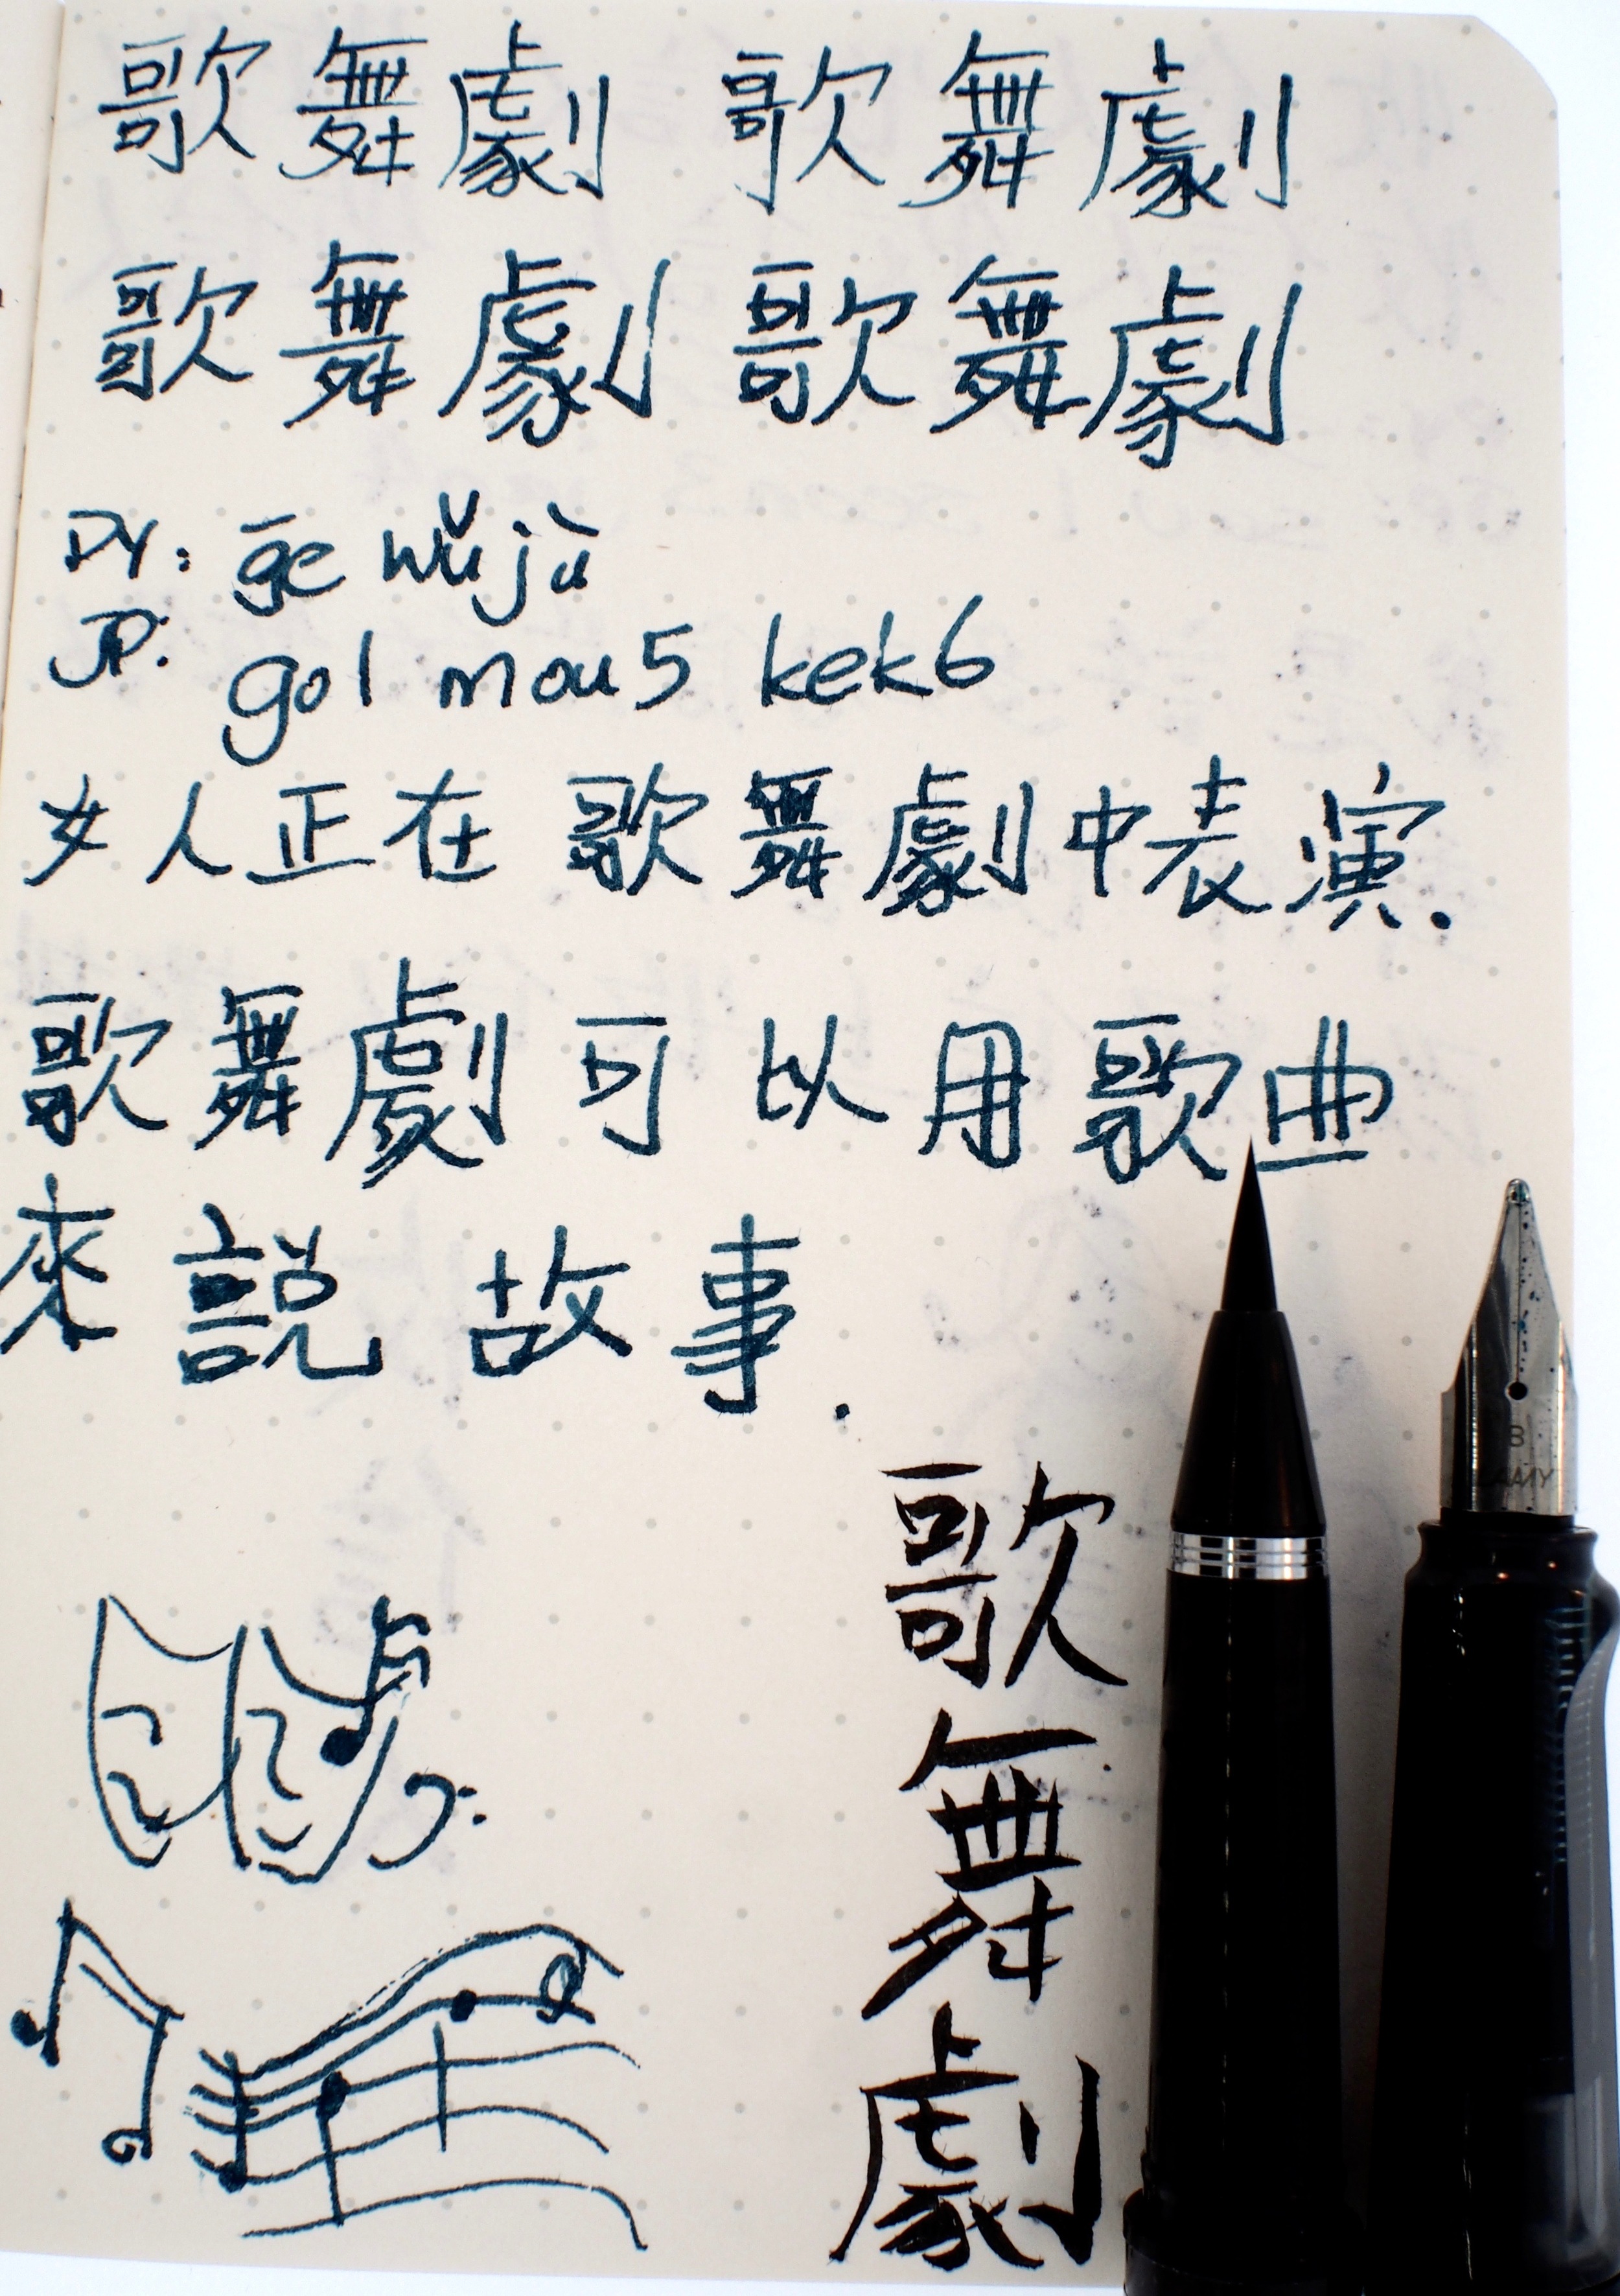 歌舞劇 歌舞劇
歌舞劇 歌舞劇
PY: gē wǔ jù
JP: go1 mou5 kek6
女人正在歌舞劇中表演.
歌舞劇可以用歌曲
來説故事.
歌
舞
劇
B
LAMY